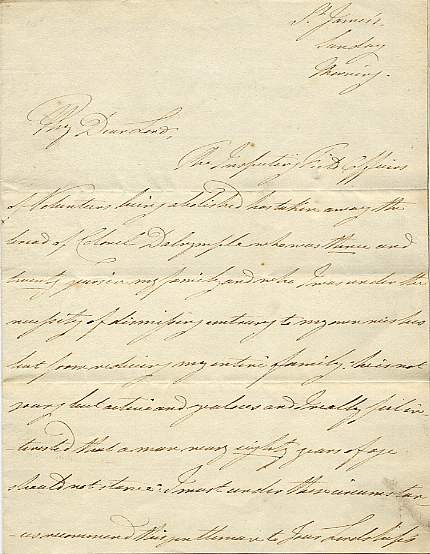 St. James's
Sunday
Morning.
My Dear Lord,
The Inspecting Field Officers
of Volunteers being abolished has taken away the
bread of Colonel Dalrymple who was three and
twenty years in my family and who I was under the
necessity of dismissing contrary to my own wishes
but from reducing my entire family: he is not
young but active and zealous and I really feel in
terested that a man near eighty years of age
should not starve: I must under this circumstan
ces recommend this gentleman to Your Lordship's